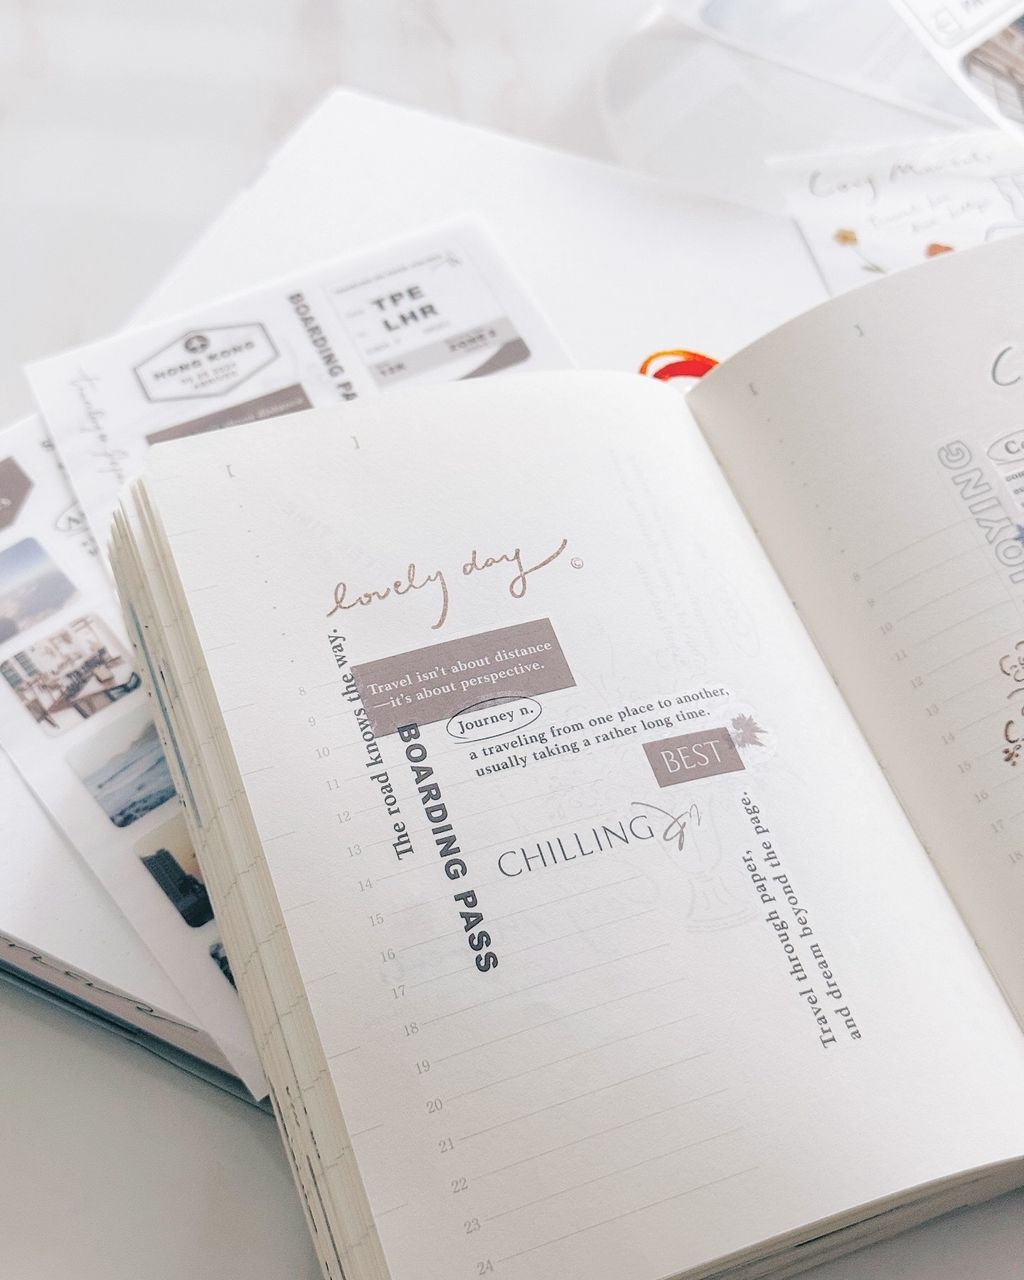 BOARDING PA
TPE
LHR
ZONE 2
12K
HONG KONG
ARRIVED
lovely day ©
The road knows the way.
Travel isn't about distance
—it's about perspective.
Journey n.
a traveling from one place to another,
usually taking a rather long time.
BEST
BOARDING PASS
CHILLING
Travel through paper,
and dream beyond the page.
8
9
10
11
12
13
14
15
16
17
18
19
20
21
22
23
24
JOYING
8
9
10
11
12
13
14
15
16
17
18